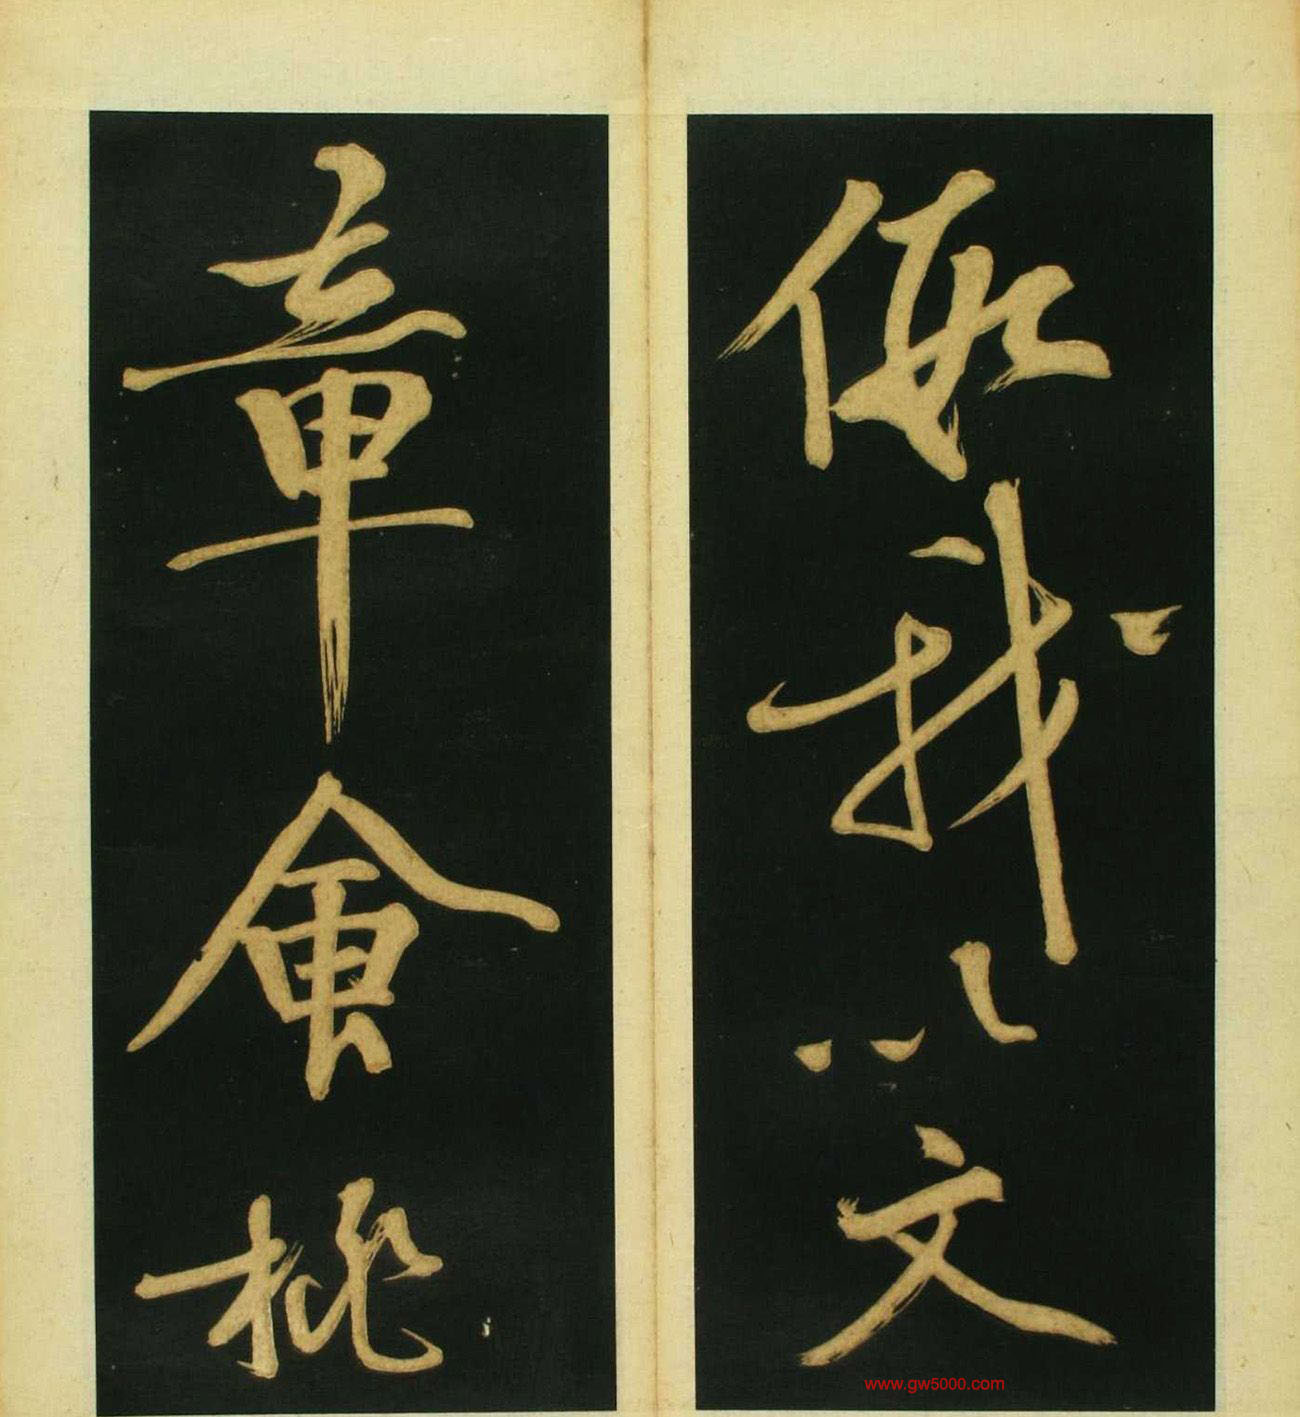 假我以文
章會桃
www.gw5000.com